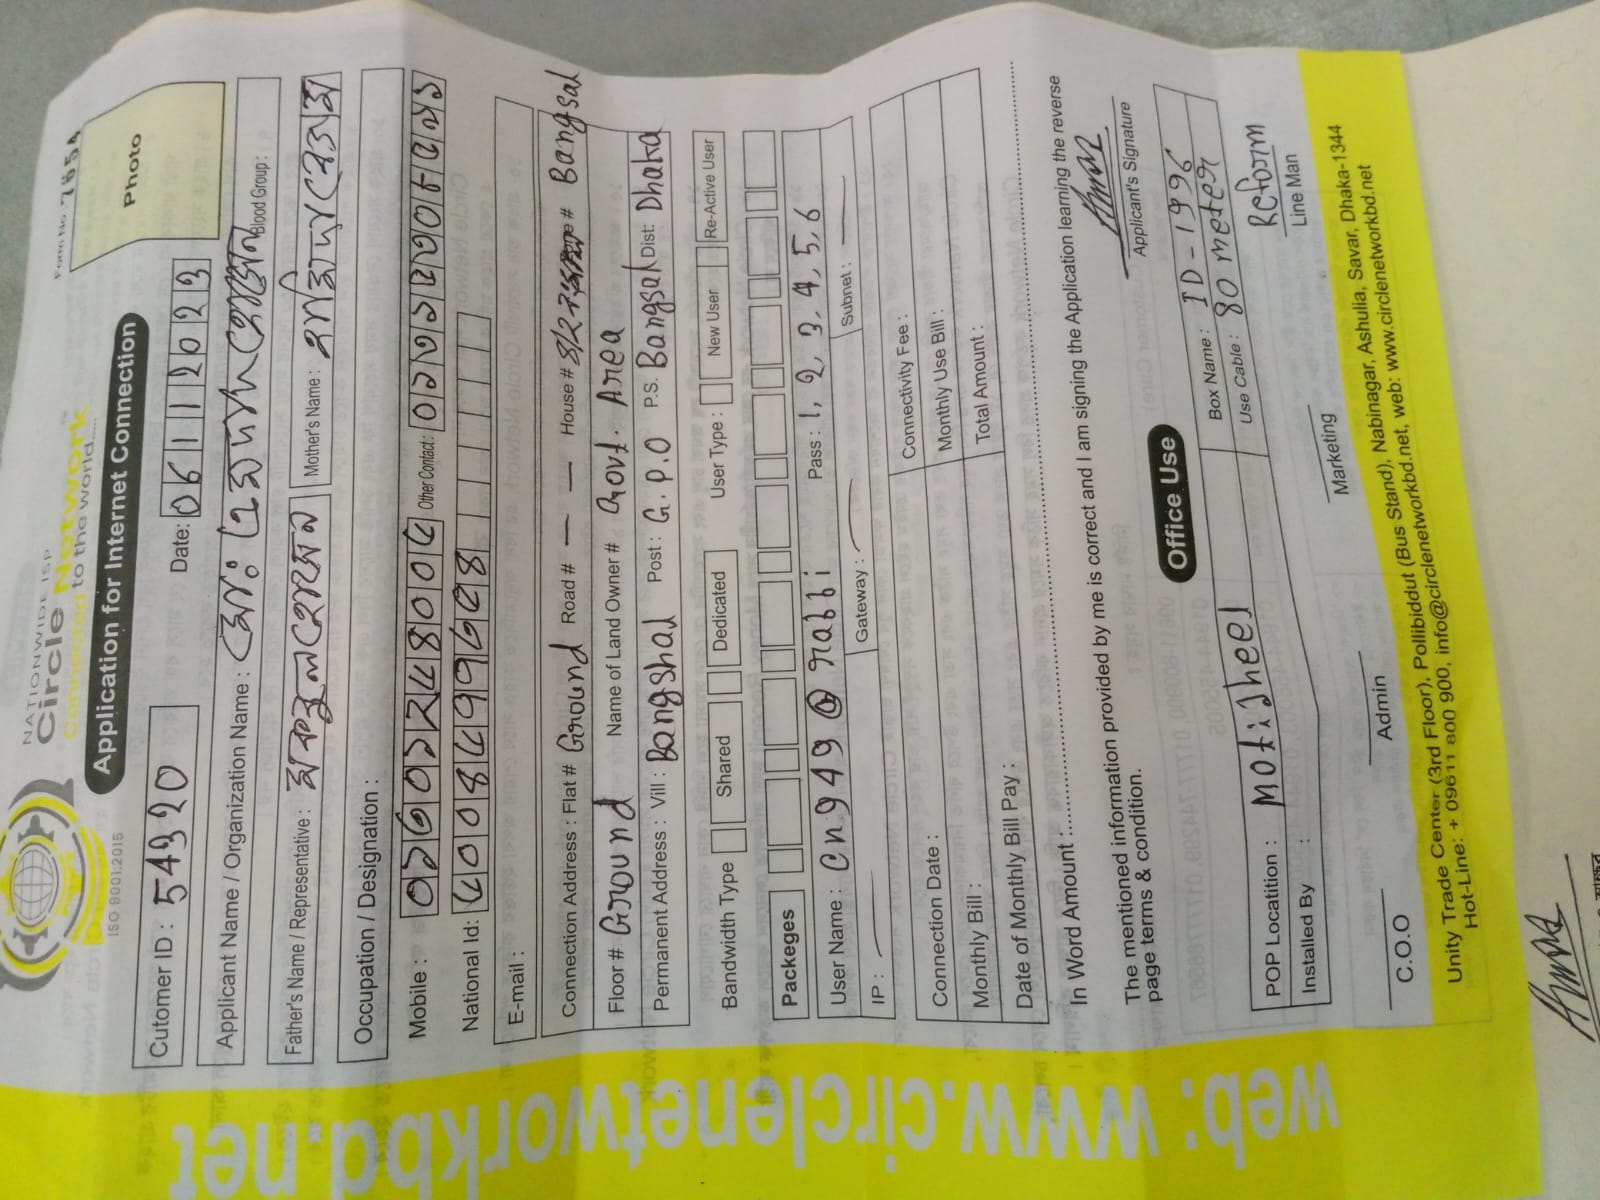 Form No. 7654
NATIONWIDE ISP
Circle Network™
Connected to the world.....
ISO 9001:2015
Application for Internet Connection
Photo
Cutomer ID : 54920 Date: 06112023
Applicant Name / Organization Name : মো: হোসেন Blood Group:
Father's Name / Representative : হোসেন Mother's Name :
Occupation / Designation :
Mobile : Other Contact:
National Id:
E-mail :
Connection Address : Flat # Ground Road # — — House # 8/2 # Bangsal
Floor # Ground Name of Land Owner # Govt. Area
Permanent Address : Vill : Bangshal Post : G.P.O P.S. Bangsal Dist: Dhaka
Bandwidth Type Shared Dedicated User Type : New User Re-Active User
Packeges
User Name : cn949@rabbi Pass : 1, 2, 3, 4, 5, 6
IP : — Gateway : — Subnet : —
Connection Date : Connectivity Fee :
Monthly Bill : Monthly Use Bill :
Date of Monthly Bill Pay : Total Amount :
In Word Amount :
The mentioned information provided by me is correct and I am signing the Application learning the reverse
page terms & condition.
Applicant's Signature
Office Use
POP Locatition : Motijheel Box Name : ID-1996
Installed By : Use Cable : 80 meter
Reform
C.O.O Admin Marketing Line Man
Unity Trade Center (3rd Floor), Pollibiddut (Bus Stand), Nabinagar, Ashulia, Savar, Dhaka-1344
Hot-Line: + 09611 800 900, info@circlenetworkbd.net, web: www.circlenetworkbd.net
web: www.circlenetworkbd.net